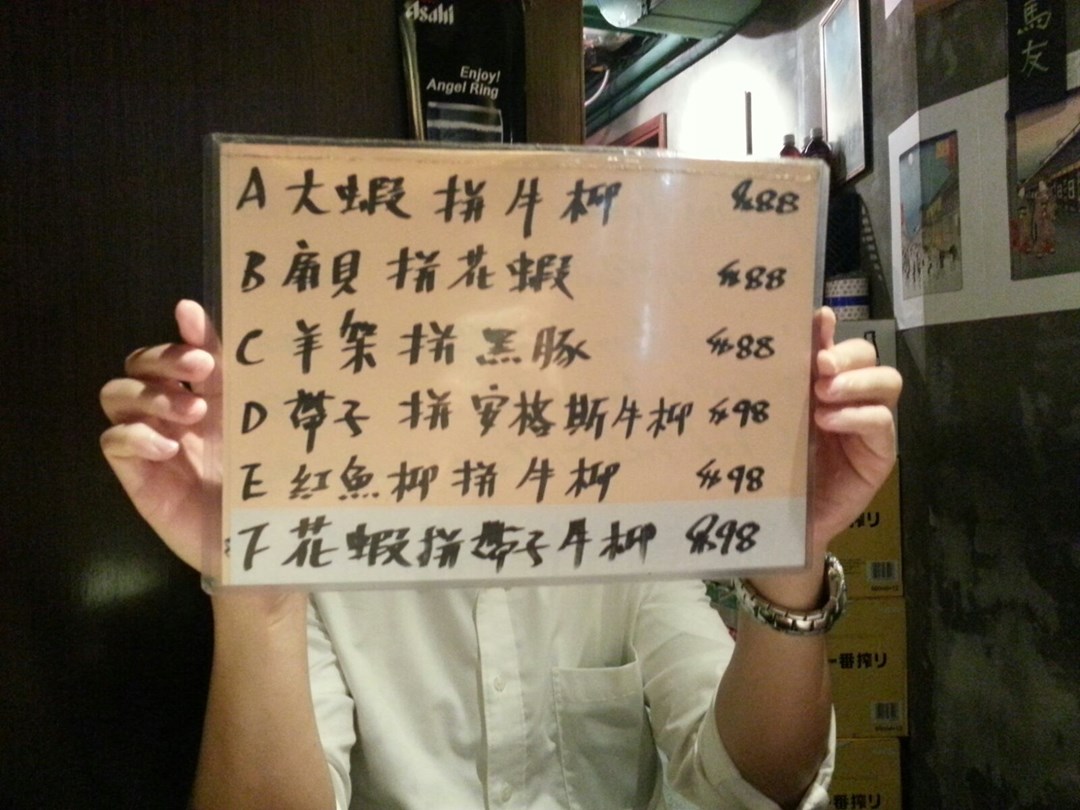 Asahi
Enjoy!
Angel Ring
馬友
A 大蝦 拼 牛柳 $88
B 扇貝 拼 花蝦 $88
C 羊架 拼 黑豚 $88
D 帶子 拼 安格斯牛柳 $98
E 紅魚柳 拼 牛柳 $98
F 花蝦拼帶子牛柳 $98
搾り
一番搾り
一番搾り